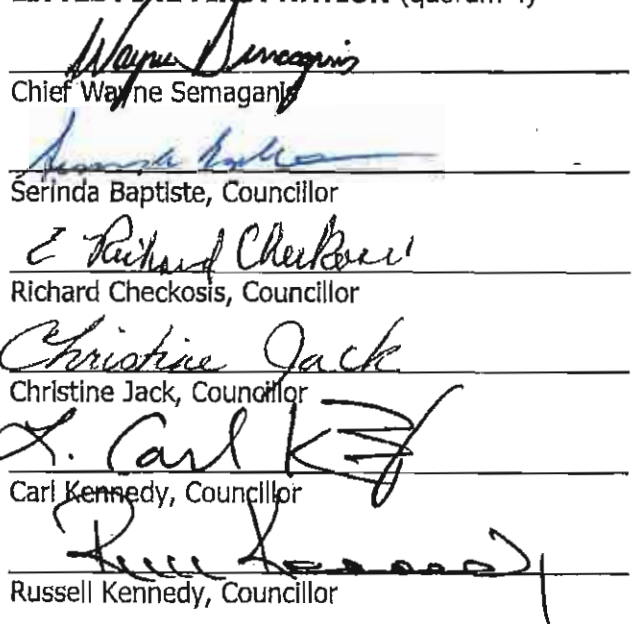 NATION (quorum 4)
Wayne Semaganis
Chief Wayne Semaganis
Serinda Baptiste, Councillor
E Richard Checkosis
Richard Checkosis, Councillor
Christine Jack
Christine Jack, Councillor
L. Carl
Carl Kennedy, Councillor
Russell Kennedy, Councillor